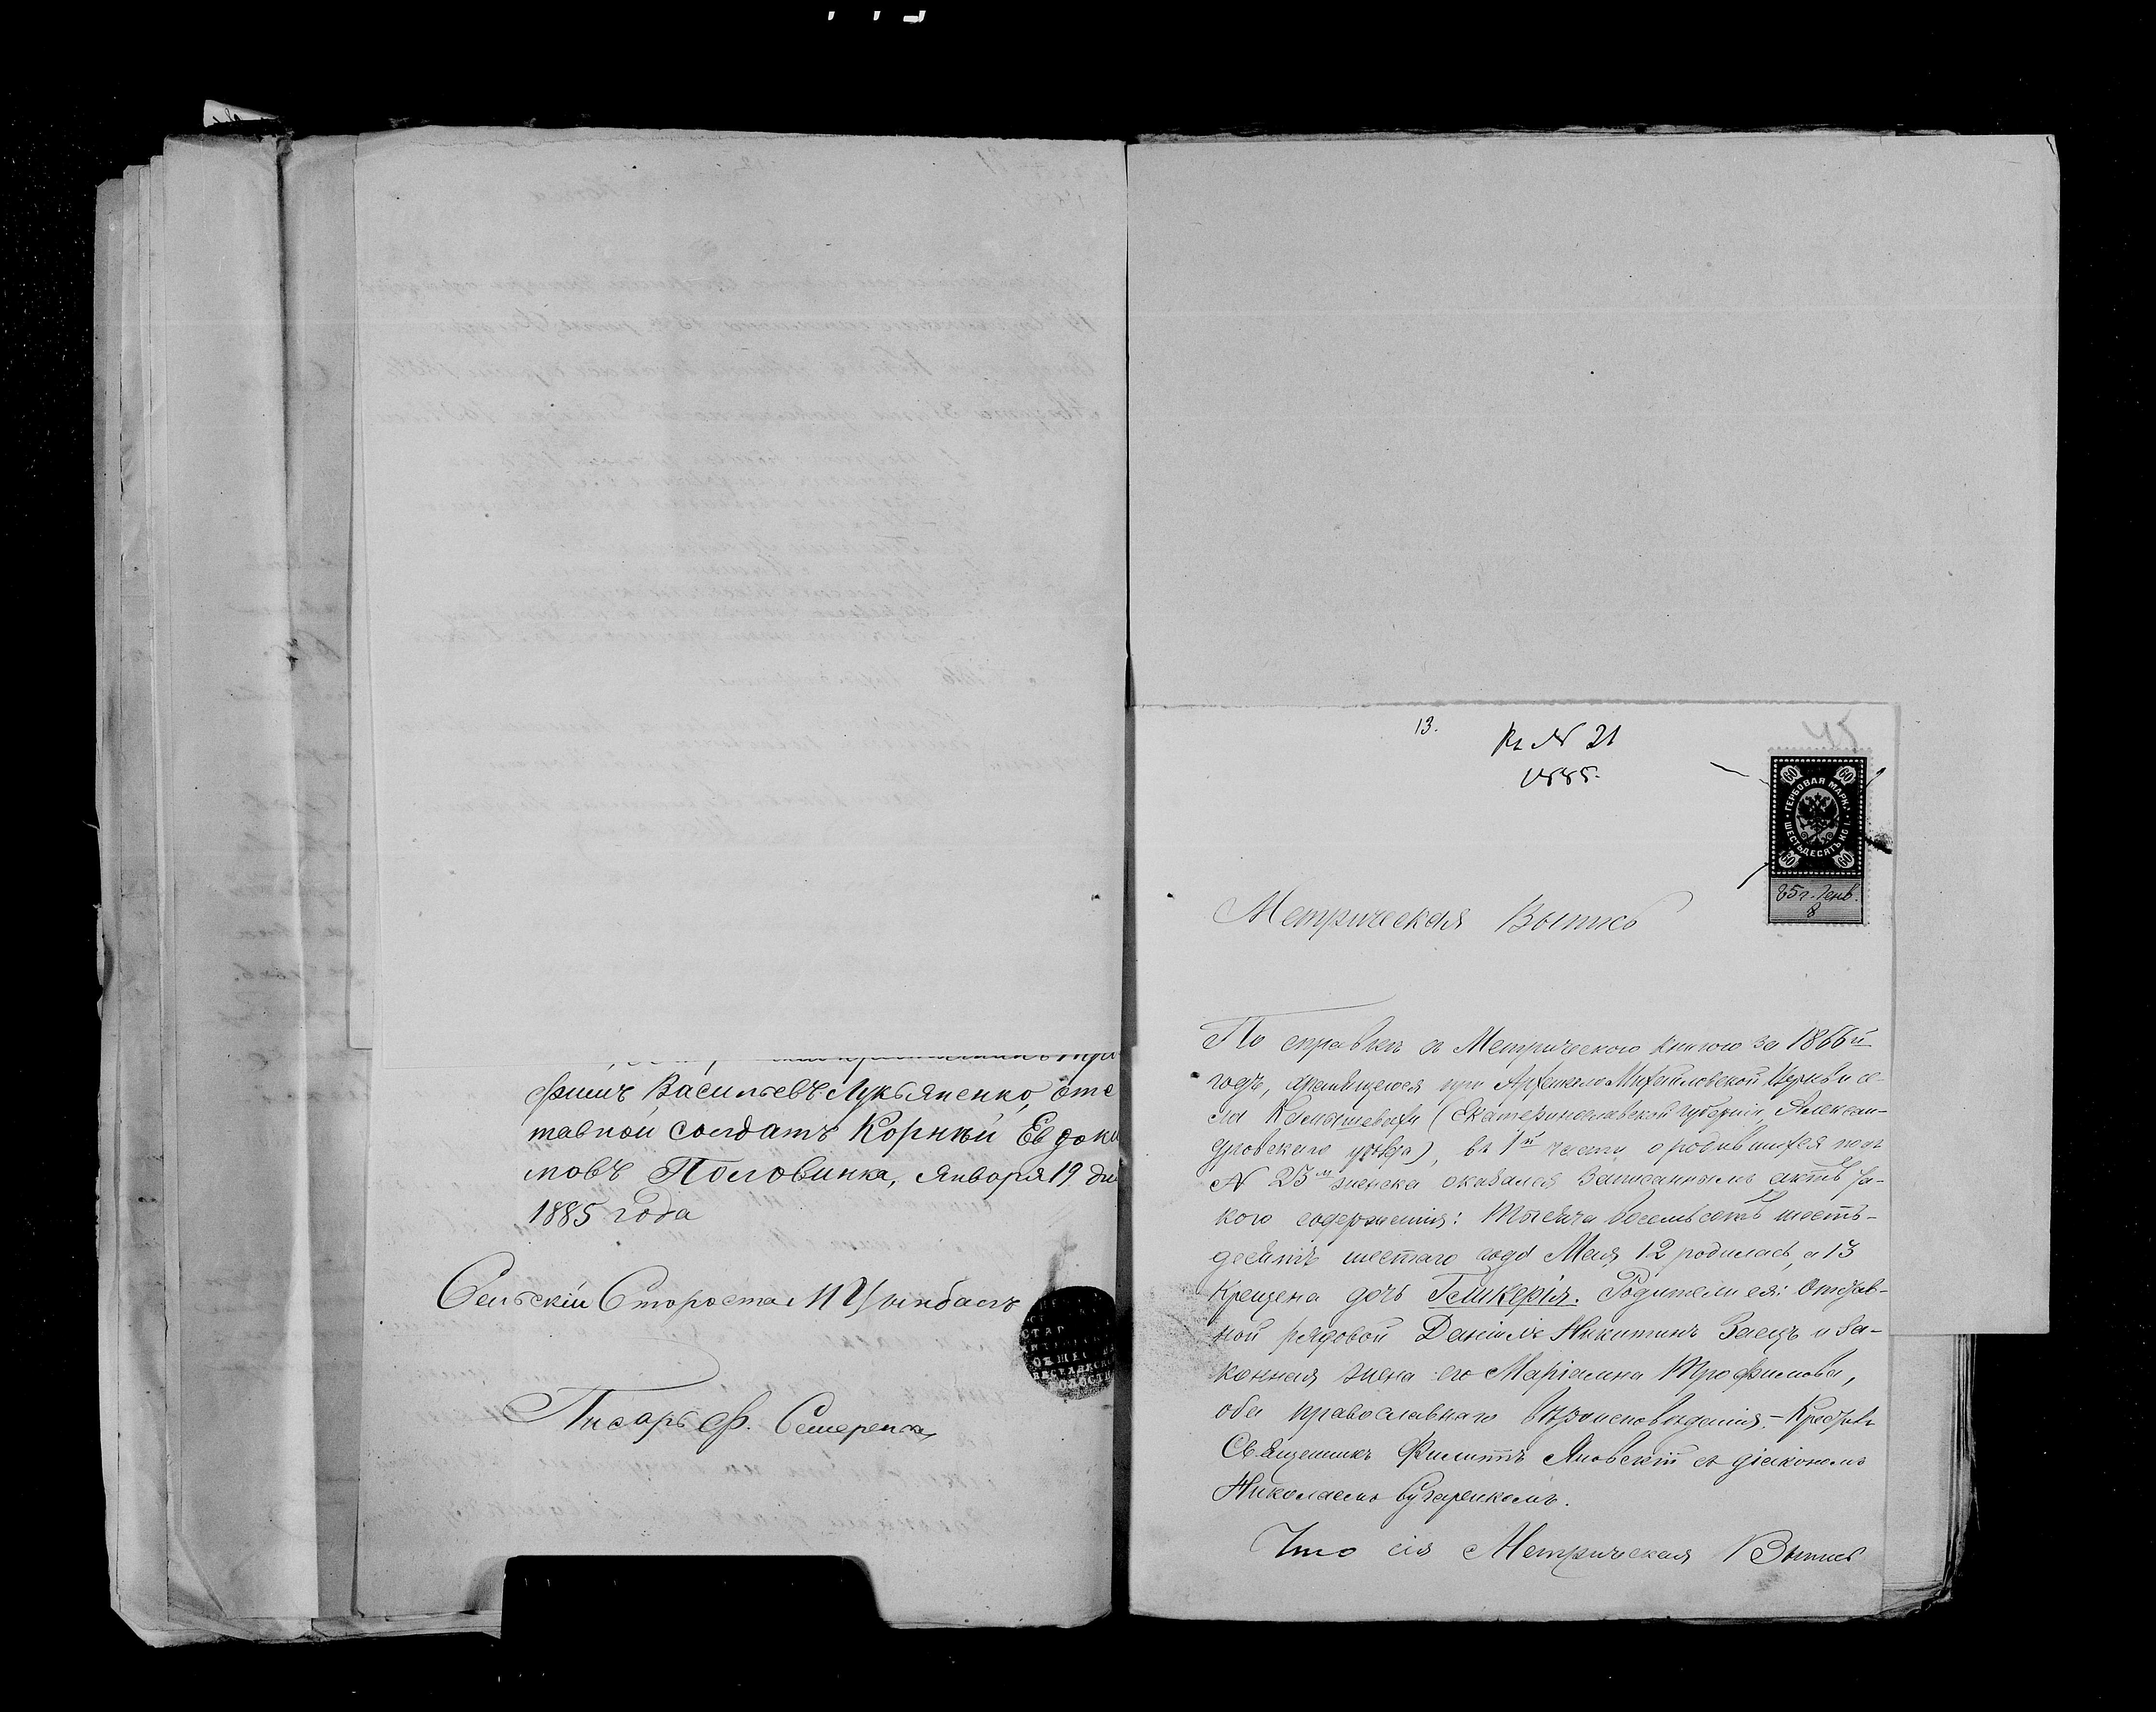 фимъ Васильевъ Лукьяненко, отс
тавной солдатъ Корнѣй Евдоки
мовъ Половинка, Января 19 дн
1885 года
Сельскій Староста И Цымбалъ
Писарь Ф. Семеренко
13.
Къ № 21
1885.
ГЕРБОВАЯ МАРКА
ШЕСТЬДЕСЯТЪ КОП.
60 60 60 60
85 г. Генв.
8
Метрическая Выпись
По справкѣ съ Метрическою книгою за 1866й
годъ, хранящеюся при Архангело Михайловской Церкви се-
ла (Екатеринославской губерніи, Алексан-
дровскаго уѣзда), въ 1й части о родившихся подъ
№ 25м женска оказался записаннымъ актъ та-
кого содержанія: Тысяча восемьсотъ шесть-
десятъ шестаго года Мая 12 родилась, а 13
крещена дочь Гликерія. Родители ея: Отстав-
ной рядовой Даніилъ Никитинъ Заецъ и за-
конная жена его Маріамна Трофимова,
оба православнаго вѣроисповѣданія. - Крестилъ
Священникъ Филиппъ Яновскій съ діакономъ
Николаемъ
Что сія Метрическая Выпись